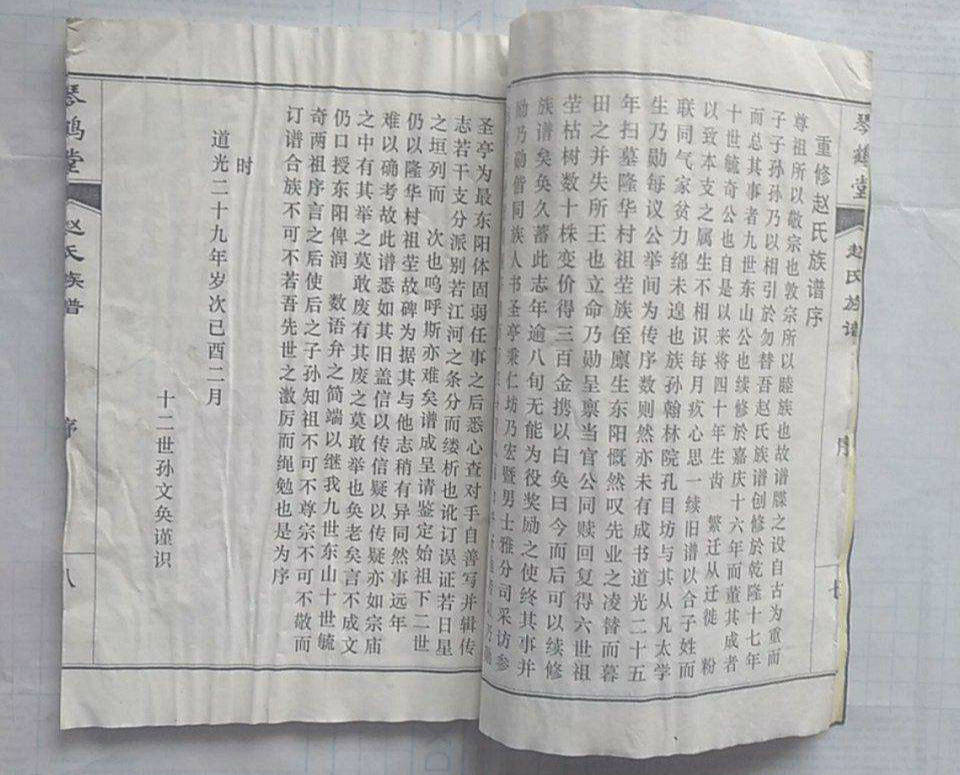 琴鹤堂
赵氏族谱
序
七
重修赵氏族谱序
尊祖所以敬宗也敦宗所以睦族也故谱牒之设自古为重而
子子孙孙乃以相引於勿替吾赵氏族谱创修於乾隆十七年
而总其事者九世东山公也续修於嘉庆十六年而董其成者
十世毓奇公也自是以来将四十年生齿 繁迁从迁徙 粉
以致本支之属生不相识每月疚心思一续旧谱以合子姓而
联同气家贫力绵未遑也族孙翰林院孔目坊与其从凡太学
生乃勋每议公举间为传序数则然亦未有成书道光二十五
年扫墓隆华村祖茔族侄廪生东阳慨然叹先业之凌替而暮
田之并失所王也立命乃勋呈禀当官公同赎回复得六世祖
茔枯树数十株变价得三百金携以白奂曰今而后可以续修
族谱矣奂久蓄此志年逾八旬无能为役奖励之使终其事并
励乃勋偕同族人书圣亭秉仁坊乃宏暨男士雅分司采访参
圣亭为最东阳体固弱任事之后悉心查对手自善写并辑传
志若干支分派别若江河之条分而缕析也讹订误证若日星
之垣列而 次也呜呼斯亦难矣谱成呈请鉴定始祖下二世
仍以隆华村祖茔故碑为据其与他志稍有异同然事远年
难以确考故此谱悉如其旧盖信以传信疑以传疑亦如宗庙
之中有其举之莫敢废有其废之莫敢举也奂老矣言不成文
仍口授东阳俾润 数语弁之简端以继我九世东山十世毓
奇两祖序言之后使后之子孙知祖不可不尊宗不可不敬而
订谱合族不可不若吾先世之激厉而绳勉也是为序
时
道光二十九年岁次已酉二月
十二世孙文奂谨识
琴鹤堂
赵氏族谱
序
八